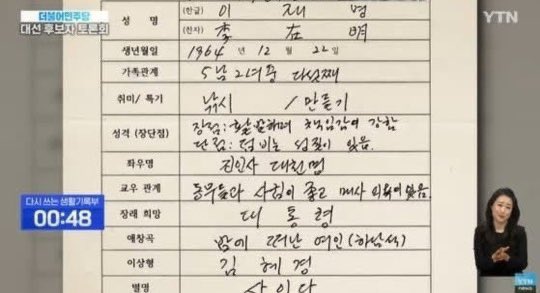 더불어민주당
대선 후보자 토론회
YTN
성 명
(한글) 이 재 명
(한자) 李 在 明
생년월일 1964 년 12 월 22 일
가족관계 5남 2녀중 다섯째
취미/ 특기 낚시 / 만들기
성격 (장단점) 장점: 활발하며 책임감이 강함
단점: 덤비는 성질이 있음.
좌우명 진인사 대천명
교우 관계 동무들과 사귐이 좋고 매사 의욕이 있음.
장래 희망 대 통 령
애창곡 밤에 떠난 여인 (하남석)
이상형 김 혜 경
별명 사 이 다
다시 쓰는 생활기록부
00:48
YTN